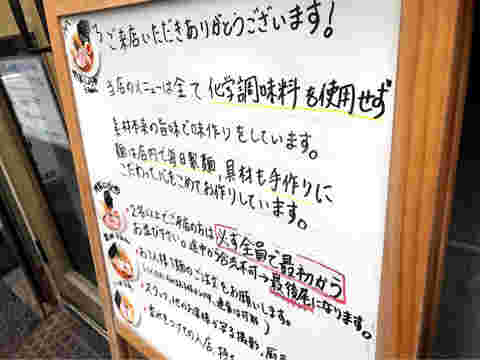 ご来店いただきありがとうございます!
当店のメニューは全て 化学調味料を使用せず
素材本来の旨味で味作りをしています。
麺は店内で毎日製麺、具材も手作りに
こだわって心をこめてお作りしています。
・2名以上でご来店の方は 必ず全員で最初から
お並び下さい。途中合流不可→最後尾になります。
・お1人様1麺のご注文をお願いします。
・スタッフ、他のお客様が写る撮影、